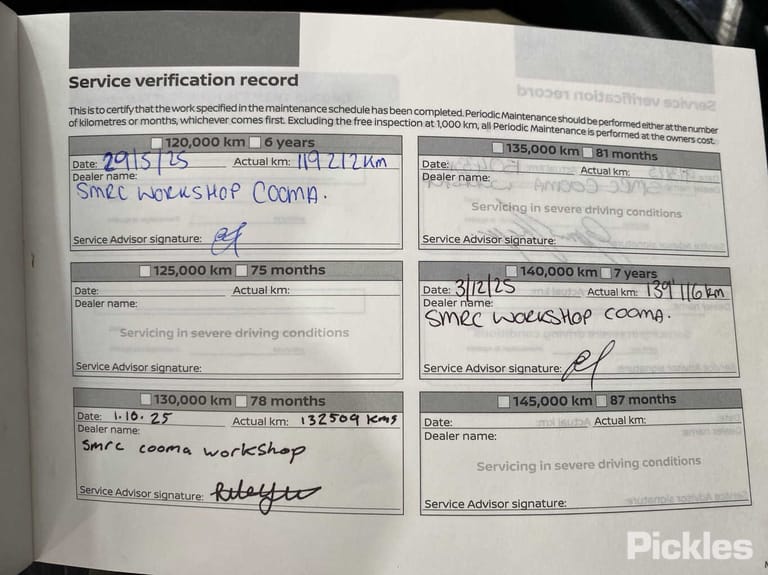 Service verification record
This is to certify that the work specified in the maintenance schedule has been completed. Periodic Maintenance should be performed either at the number
of kilometres or months, whichever comes first. Excluding the free inspection at 1,000 km, all Periodic Maintenance is performed at the owners cost.
120,000 km 6 years
Date: 29/5/25 Actual km: 119212km
Dealer name:
SMRC WORKSHOP COOMA.
Service Advisor signature:
125,000 km 75 months
Date: Actual km:
Dealer name:
Servicing in severe driving conditions
Service Advisor signature:
130,000 km 78 months
Date: 1.10.25 Actual km: 132509 kms
Dealer name:
Smrc cooma workshop
Service Advisor signature:
135,000 km 81 months
Date: Actual km:
Dealer name:
Servicing in severe driving conditions
Service Advisor signature:
140,000 km 7 years
Date: 3/12/25 Actual km: 139116km
Dealer name:
SMRC WORKSHOP COOMA.
Service Advisor signature:
145,000 km 87 months
Date: Actual km:
Dealer name:
Servicing in severe driving conditions
Service Advisor signature:
Pickles